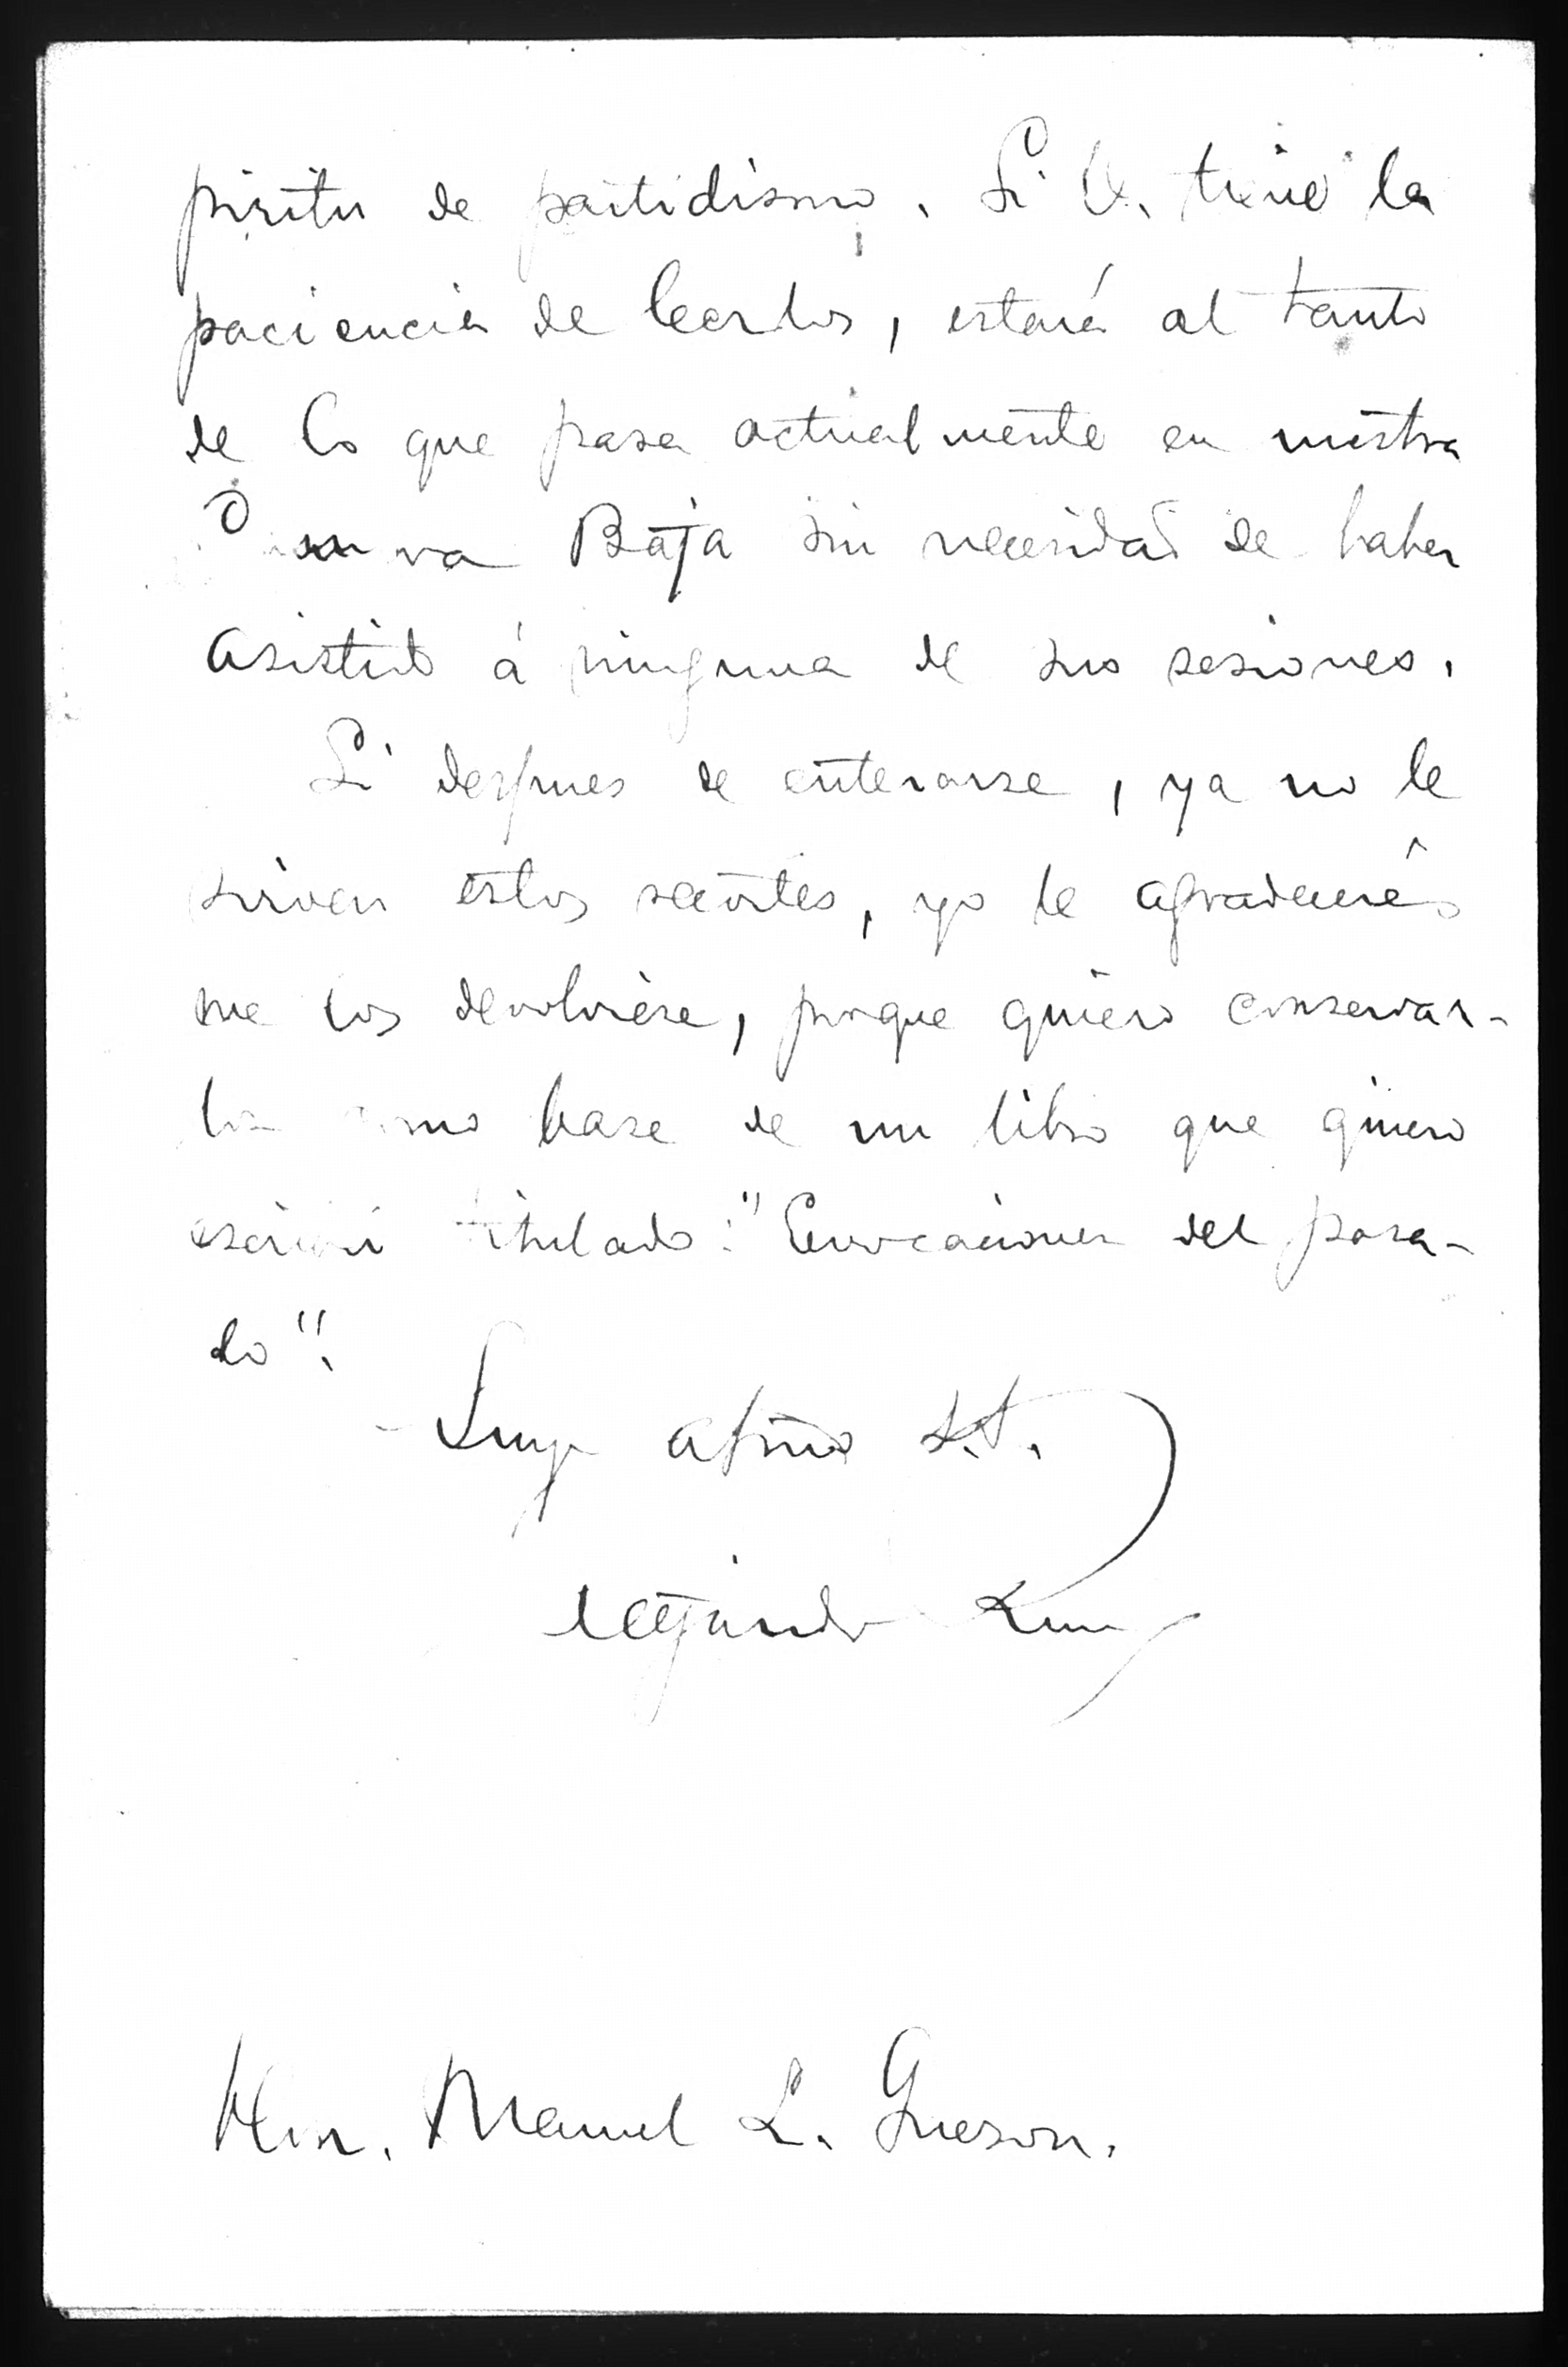 píritu de partidismo. Si V. tiene la
paciencia de leerlos, estará al tanto
de lo que pasa actualmente en nuestra
Cámara Baja sin necesidad de haber
asistido á ninguna de sus sesiones.
Si despues de enterarse, ya no le
sirven estos recortes, yo le agradeceré
me los devolviese, porque quiero conservar-
los como base de un libro que quiero
escribir titulado: "Evocaciones del pasa-
do".
Suyo afmo S.S.
Hon. Manuel L. Quezon.